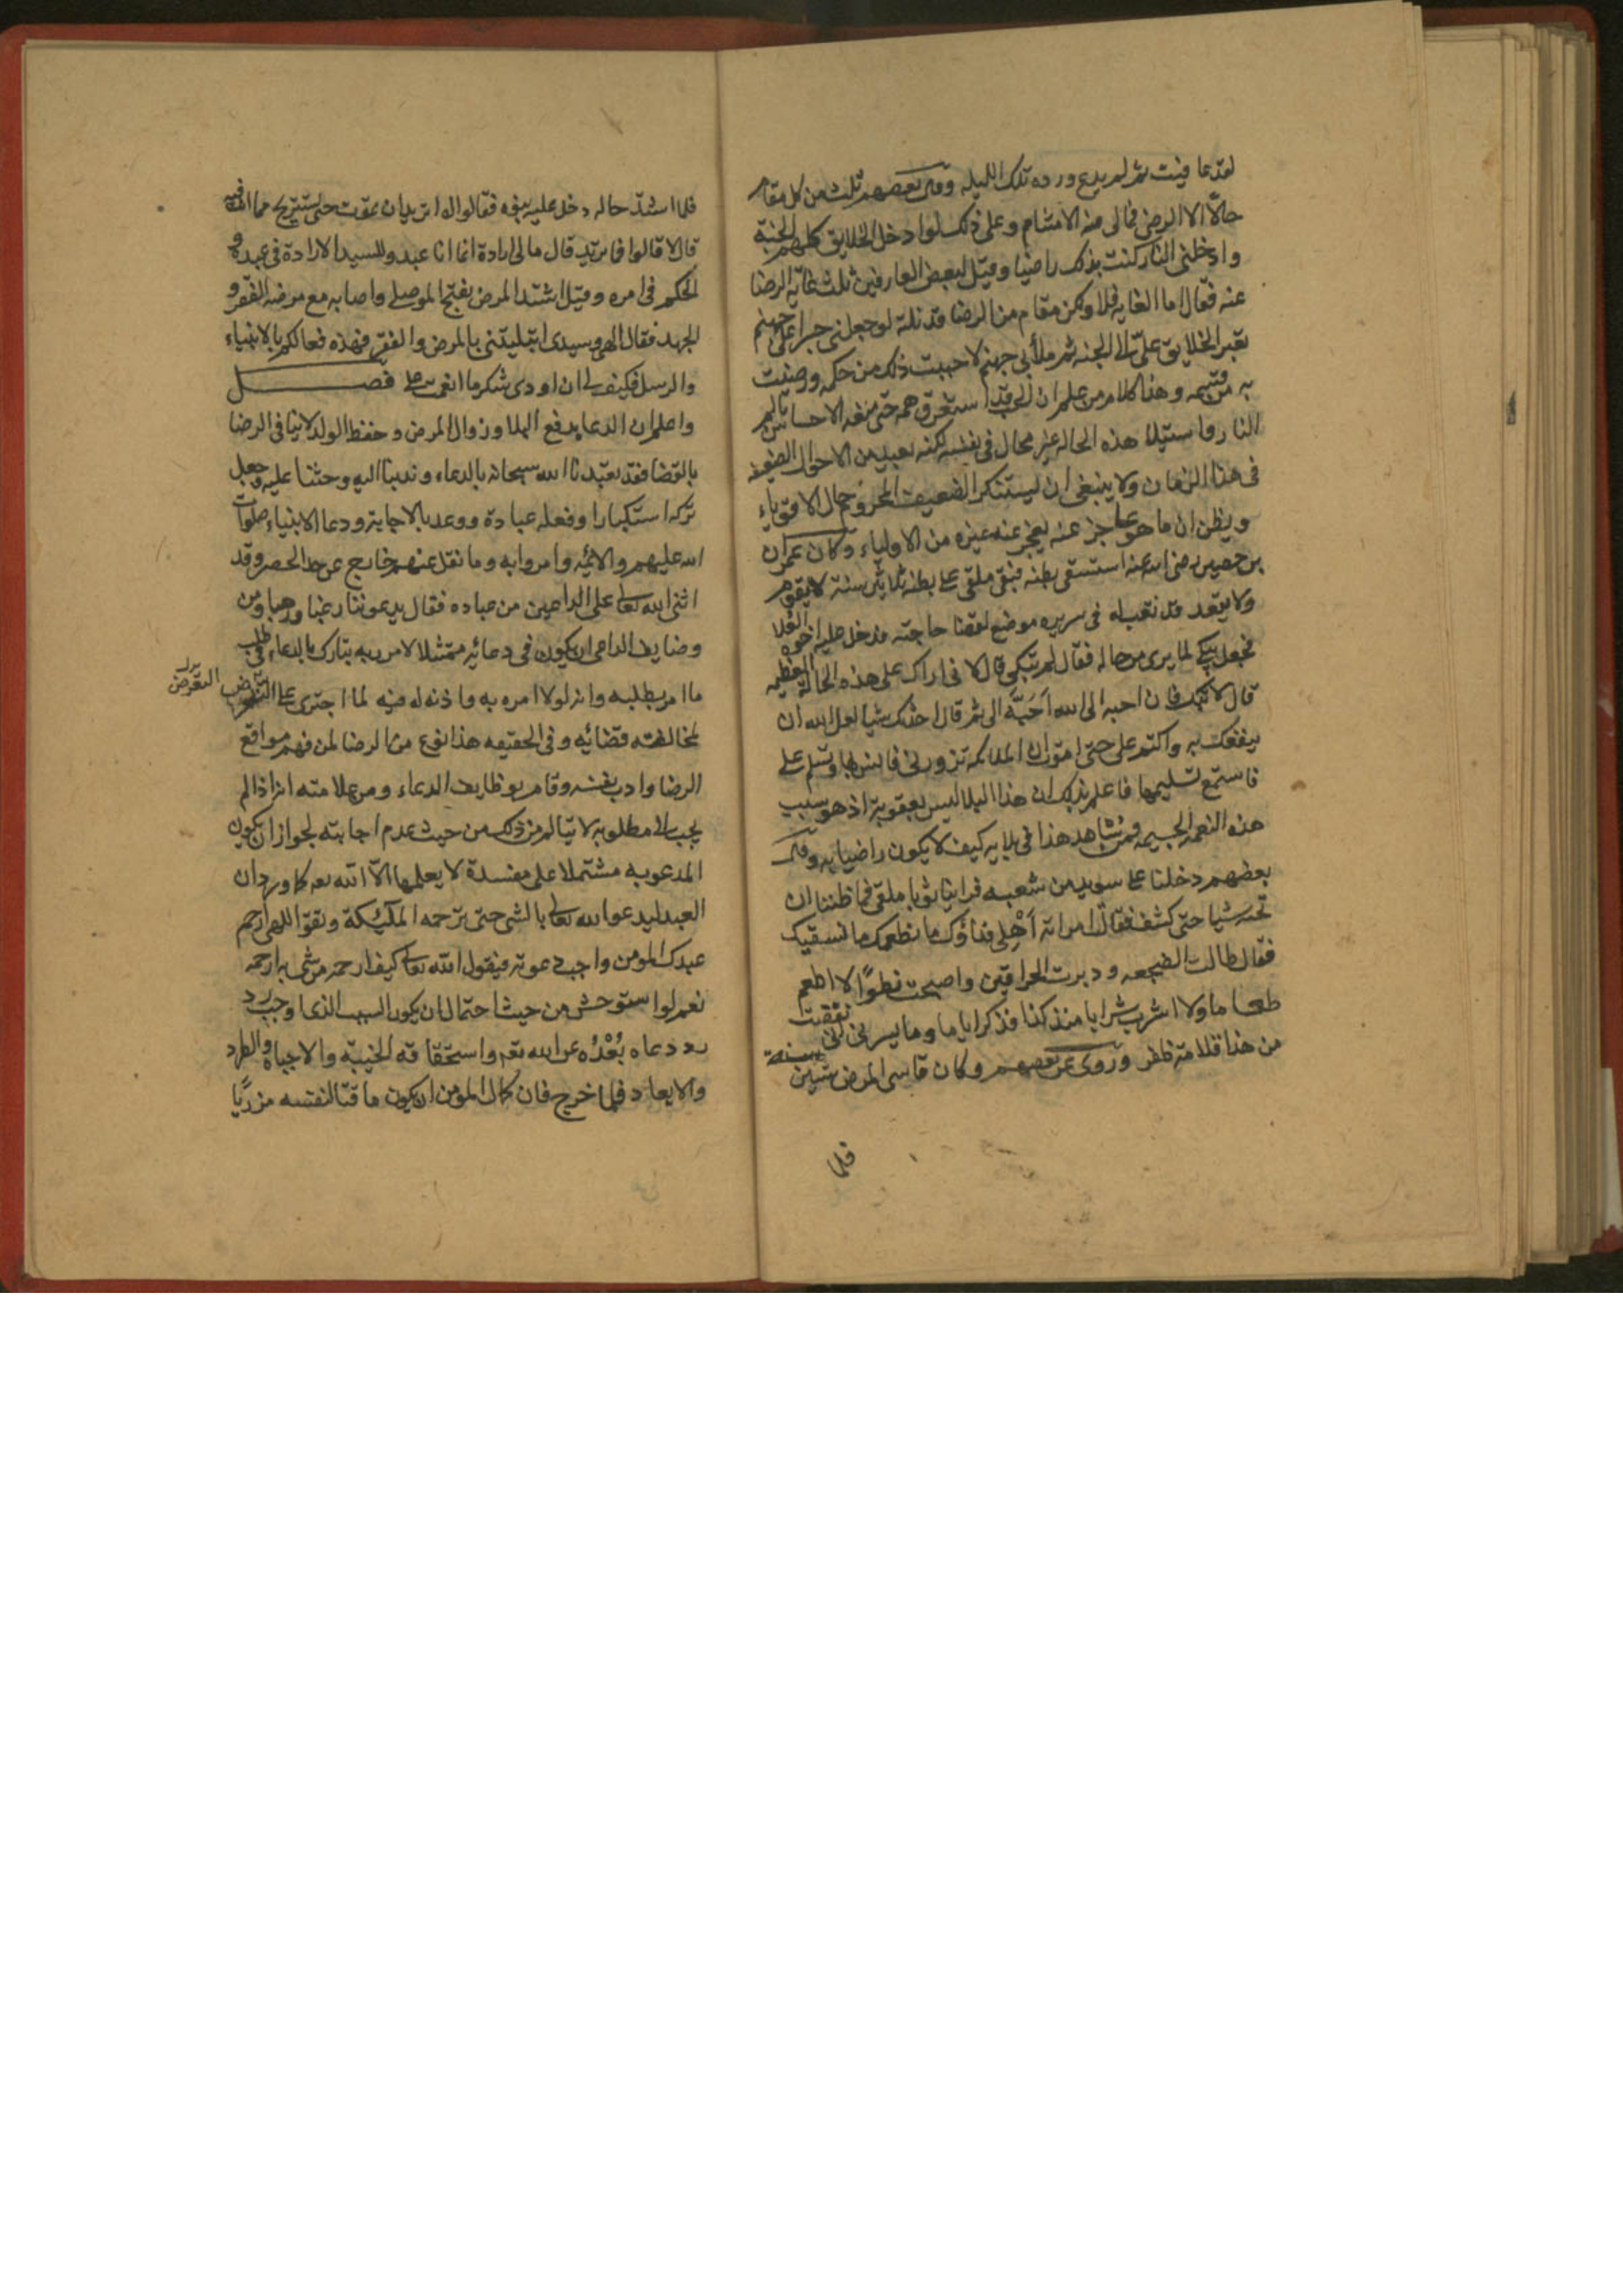 لقد عافيت ثم لم يدع ورده تلك الليله وقال بعضهم نلت من كل مقام
حالا الا الرضى فمالى منه الا مشام وعلى ذلك لو ادخل الخلايق كلهم الجنة
وادخلنى النار كنت بذلك راضيا وقيل لبعض العارفين نلت غاية الرضا
عنه فقال اما الغايه فلا ولكن مقام من الرضا قد نلته لو جعلنى جسرا على جهنم
تعبر الخلايق علىّ الى الجنه ثم ملأ بى جهنم لاحببت ذلك من حكمه ورضيت
به من قسمه وهذا كلام من علم ان الحب قد استغرق همه حتى منعه الاحساس بالم
النار واستيلاء هذه الحاله غير محال فى نفسه لكنه بعيد من الاحوال الضعيفه
فى هذا الزمان ولا ينبغى ان يستنكر الضعيف المحروم حال الاقوياء
ويظن ان ما هو عاجز عنه يعجز عنه غيره من الاولياء وكان عمران
بن حصين رضى الله عنه استسقى بطنه فبقى ملقى على بطنه ثلاثين سنة لا يقوم
ولا يقعد قد نقب له فى سريره موضع لقضا حاجته فدخل عليه اخوه العلا
فجعل يبكى لما يرى من حاله فقال لم تبكى قال لانى اراك على هذه الحالة العظيمه
قال لا تبك فان احبه الى الله اَحَبّه الى ثم قال احدثك شيا لعل الله ان
ينفعك به واكتم على حتى اموت ان الملائكة تزورنى فانس بها وتسلم على
فاستمع تسليمها فاعلم بذلك ان هذا البلا ليس بعقوبة اذ هو سبب
هذه النعمه الجسيمه فمن شاهد هذا فى بلايه كيف لا يكون راضيا به وقال
بعضهم دخلنا على سويد بن شعبه فراينا ثوبا ملقى فما ظننا ان
تحته شيا حتى كشف فقالت امراته اَهْلى فداؤك ما نطعمك ما نسقيك
فقال طالت الضجعه ودبرت الحراقيف واصبحت نضوًا لا اطعم
طعاما ولا اشرب شرابا منذ كذا فذكر اياما وما يسرنى انى نقصت
من هذا قلامة ظفر وروى عن بعضهم وكان قاسى المرض ستين سنة
فلما
فلما اشتد حاله دخل عليه بنوه فقالوا له اتريد ان تموت حتى تستريح مما انت فيه
قال لا قالوا فما تريد قال مالى ارادة انما انا عبد وللسيد الارادة فى عبده و
الحكم فى امره وقيل اشتد المرض بفتح الموصلى واصابه مع مرضه الفقر و
الجهد فقال الهى وسيدى ابتليتنى بالمرض والفقر فهذه فعالك بالانبياء
والرسل فكيف لى ان اودى شكر ما انعمت على فصـــل
واعلم ان الدعا يدفع البلا وزوال المرض وحفظ الولد لا ينافى الرضا
بالقضا فقد تعبدنا الله سبحانه بالدعاء وندبنا اليه وحثنا عليه وجعل
تركه استكبارا وفعله عبادة ووعد بالاجابة ودعا الانبياء صلوات
الله عليهم والائمه وامروا به وما نقل عنهم خارج عن حد الحصر وقد
اثنى الله تعالى على الداعين من عباده فقال يدعوننا رغبا ورهبا ومن
وضايف الداعى ان يكون فى دعائه ممتثلا لامر ربه تبارك بالدعاء فى طلب
ما امر بطلبه وانه لولا امره به واذنه له فيه لما اجترى على التعرض
التعرض
لمخالفته قضائه وفى الحقيقه هذا نوع من الرضا لمن فهم مواقع
الرضا وادب نفسه وقام بوظايف الدعاء ومن علامته انه اذا لم
يجب الى مطلوبه لا يتالم من ذلك من حيث عدم اجابته لجواز ان يكون
المدعو به مشتملا على مفسدة لا يعلمها الا الله تعه كما ورد ان
العبد ليدعو الله تعالى بالشى حتى ترحمه الملئكة وتقول اللهى ارحم
عبدك المومن واجب دعوته فيقول الله تعالى كيف ارحمه من شى به ارحمه
نعم لو استوحش من حيث احتمال ان يكون السبب الذى اوجب رد
رد دعاه بُعْدُه عن الله تعه واستحقاقه الخيبة والاجباه والطرد
والابعاد فلا حرج فان كمال المومن ان يكون ماقتا لنفسه مزريًا